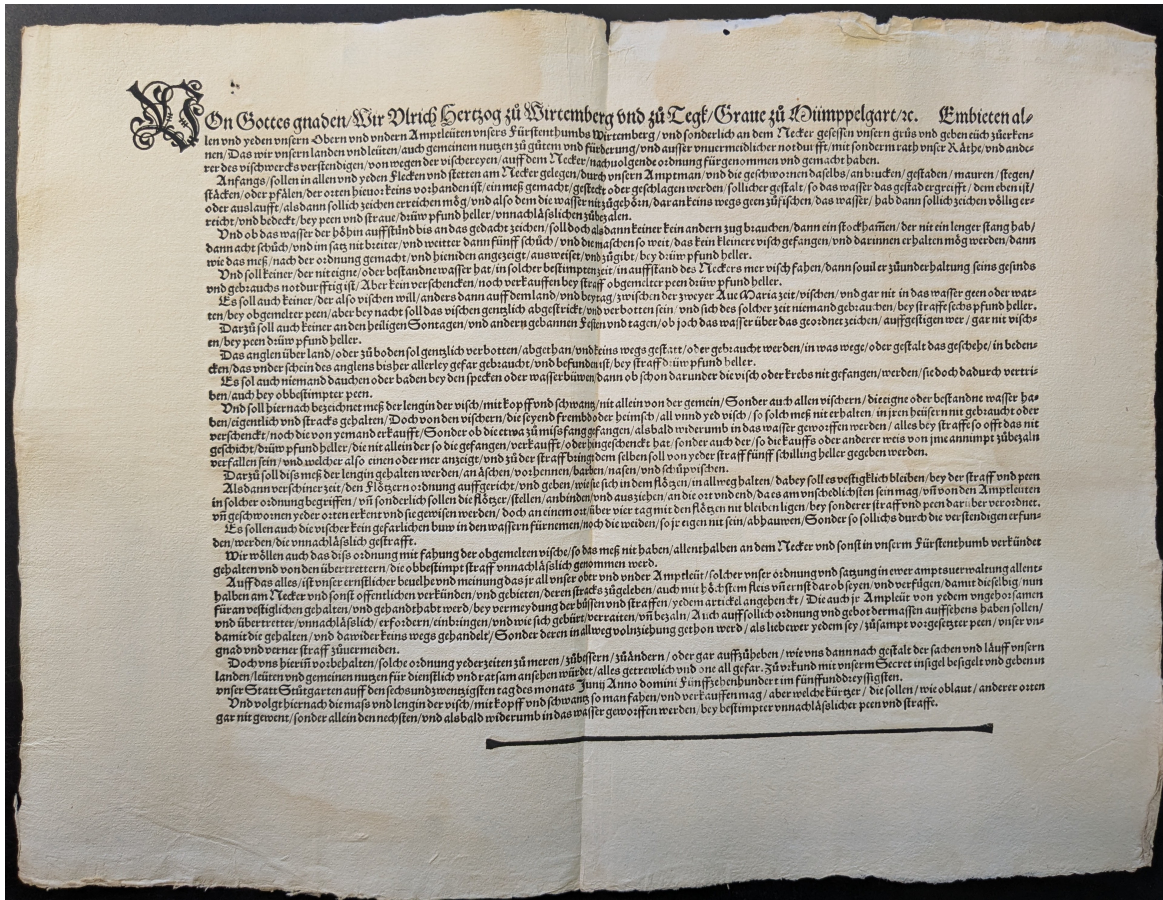 VOn Gottes gnaden/Wir Vlrich Hertzog zů Wirtemberg vnd zů Tegk/Graue zů Mümppelgart/ꝛc. Embieten al-
len vnd yeden vnsern Obern vnd vndern Amptleüten vnsers Fürstenthumbs Wirtemberg/vnd sonderlich an dem Necker gesessen vnsern grůs vnd geben eüch zůerken-
nen/Das wir vnsern landen vnd leüten/auch gemeinem nutzen zů gůtem vnd fürderung/vnd ausser vnuermeidlicher notdurfft/mit sonderm rath vnser Räthe/vnd ande-
rer des vischwercks verstendigen/von wegen der vischereyen/auff dem Necker/nachuolgende ordnung fürgenommen vnd gemacht haben.
Anfangs/sollen in allen vnd yeden Flecken vnd stetten am Necker gelegen/durch vnsern Amptman/vnd die geschwornen daselbs/an brucken/gestaden/mauren/stegen/
stöcken/oder pfälen/der orten hieuor keins vorhanden ist/ein meß gemacht/gesteckt oder geschlagen werden/sollicher gestalt/so das wasser das gestad ergreifft/dem eben ist/
oder auslaufft/alsdann sollich zeichen erreichen mög/vnd also dem die wasser nit zůgehörn/daran keins wegs geen zůfischen/das wasser/hab dann sollich zeichen völlig er-
reicht/vnd bedeckt/bey peen vnd straue/drüw pfund heller/vnnachläslichen zůbezalen.
Vnd ob das wasser der höhin auffstünd bis an das gedacht zeichen/soll doch alsdann keiner kein andern zug brauchen/dann ein stockhamen/der nit ein lenger stang hab/
dann acht schůch/vnd im satz nit breiter/vnd weitter dann fünff schůch/vnd die maschen so weit/das kein kleinere visch gefangen/vnd darinnen erhalten mög werden/dann
wie das meß/nach der ordnung gemacht/vnd hieniden angezeigt/ausweist/vnd zůgibt/bey drüw pfund heller.
Vnd soll keiner/der nit eigne/oder bestandne wasser hat/in solcher bestimpten zeit/in auffstand des Neckers mer visch fahen/dann souil er zůunderhaltung seins gesinds
vnd gebrauchs notdurfftig ist/Aber kein verschencken/noch verkauffen bey straff obgemelter peen drüw pfund heller.
Es soll auch keiner/der also vischen will/anders dann auff dem land/vnd bey tag/zwischen der zweyer Aue Maria zeit/vischen/vnd gar nit in das wasser geen oder wat-
ten/bey obgemelter peen/aber bey nacht soll das vischen gentzlich abgestrickt/vnd verbotten sein/vnd sich des solcher zeit niemand gebrauchen/bey straffe sechs pfund heller.
Darzů soll auch keiner an den heiligen Sontagen/vnd andern gebannen Festen vnd tagen/ob joch das wasser über das geordnet zeichen/auffgestigen wer/gar nit visch-
en/bey peen drüw pfund heller.
Das anglen über land/oder zů boden sol gentzlich verbotten/abgethan/vnd keins wegs gestatt/oder gebraucht werden/in was wege/oder gestalt das geschehe/in beden-
cken/das vnder schein des anglens bisher allerley gefar gebraucht/vnd befunden ist/bey straff drüw pfund heller.
Es sol auch niemand dauchen oder baden bey den specken oder wasserbüwen/dann ob schon darunder die visch oder krebs nit gefangen/werden/sie doch dadurch vertri-
ben/auch bey obbestimpter peen.
Vnd soll hiernach bezeichnet meß der lengin der visch/mit kopff vnd schwantz/nit allein von der gemein/Sonder auch allen vischern/die eigne oder bestandne wasser ha-
ben/eigentlich vnd stracks gehalten/Doch von den vischern/die seyend frembd oder heimsch/all vnnd yed visch/so solch meß nit erhalten/in jren heüsern nit gebraucht oder
verschenckt/noch die von yemand erkaufft/Sonder ob die etwa zů missfang gefangen/alsbald widerumb in das wasser geworffen werden/alles bey straffe so offt das nit
geschicht/drüw pfund heller/die nit allein der so die gefangen/verkaufft/oder hingeschenckt hat/sonder auch der/so die kauffs oder anderer weis von jme annimpt zůbezaln
verfallen sein/vnd welcher also einen oder mer anzeigt/vnd zů der straff bringt/dem selben soll von yeder straff fünff schilling heller gegeben werden.
Darzů soll diß meß der lengin gehalten werden/an äschen/vorhennen/barben/nasen/vnd schůpvischen.
Als dann verschiner zeit/den Flötzern ordnung auffgericht/vnd geben/wie sie sich in dem flötzen/in allweg halten/dabey soll es vestigklich bleiben/bey der straff vnd peen
in solcher ordnung begriffen/vñ sonderlich sollen die flötzer/stellen/anbinden/vnd ausziehen/an die ort vnd end/da es am vnschedlichsten sein mag/vñ von den Amptleuten
vñ geschwornen yeder orten erkent vnd sie gewisen werden/doch an einem ort/über vier tag mit den flötzen nit bleiben ligen/bey sonderer straff vnd peen darüber verordnet.
Es sollen auch die vischer kein gefarlichen buw in den wassern fürnemen/noch die weiden/so jr eigen nit sein/abhauwen/Sonder so sollichs durch die verstendigen erfun-
den/werden/die vnnachläslich gestrafft.
Wir wöllen auch das diss ordnung mit fahung der obgemelten vische/so das meß nit haben/allenthalben an dem Necker vnd sonst in vnserm Fürstenthumb verkündet
gehalten vnd von den übertrettern/die obbestimpt straff vnnachläslich genommen werd.
Auff das alles/ist vnser ernstlicher beuelhe vnd meinung das jr all vnser ober vnd vnder Amptleüt/solcher vnser ordnung vnd satzung in ewer amptsuerwaltung allent-
halben am Necker vnd sonst offentlichen verkünden/vnd gebieten/deren stracks zůgeleben/auch mit höchstem fleis vñ ernst darob seyen/vnd verfügen/damit dieselbig/nun
für an vestiglichen gehalten/vnd gehandthabt werd/bey vermeydung der bůssen vnd straffen/yedem artickel angehenckt/Die auch jr Ampleüt von yedem vngehorsamen
vnd übertretter/vnnachläslich/erfordern/einbringen/vnd wie sich gebürt/verraiten/vñ bezaln/Auch auff sollich ordnung vnd gebot dermassen auffsehens haben sollen/
damit die gehalten/vnd dawider keins wegs gehandelt/Sonder deren in allweg volnziehung gethon werd/als lieb ewer yedem sey/zůsampt vorgesetzter peen/vnser vn-
gnad vnd verner straff zůuermeiden.
Doch vns hierin vorbehalten/solche ordnung yeder zeiten zů meren/zůbessern/zůändern/oder gar auffzůheben/wie vns dann nach gestalt der sachen vnd läuff vnsern
landen/leüten vnd gemeinen nutzen für dienstlich vnd ratsam ansehen würdet/alles getrewlich vnd one all gefar. Zů vrkund mit vnserm Secret insigel besigelt vnd geben in
vnser Statt Stůtgarten auff den sechsundzwentzigsten tag des monats Junij Anno domini Fünffzehenhundert im fünffunddreyssigsten.
Vnd volgt hiernach die mass vnd lengin der visch/mit kopff vnd schwantz so man fahen/vnd verkauffen mag/aber welche kürtzer/die sollen/wie oblaut/anderer orten
gar nit gewent/sonder allein den nechsten/vnd alsbald widerumb in das wasser geworffen werden/bey bestimpter vnnachläslicher peen vnd straffe.